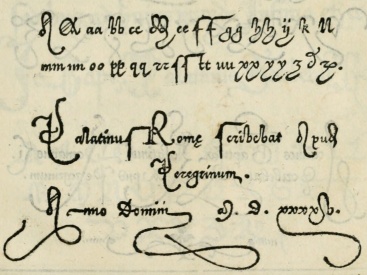 A a aa bb cc dd ee ff gg hh ij k ll
mm nn oo pp qq rr ss tt uu xx yy z
Palatinus Romę Scribebat Apud
Peregrinum.
Anno Domini M. D. xxxxv.